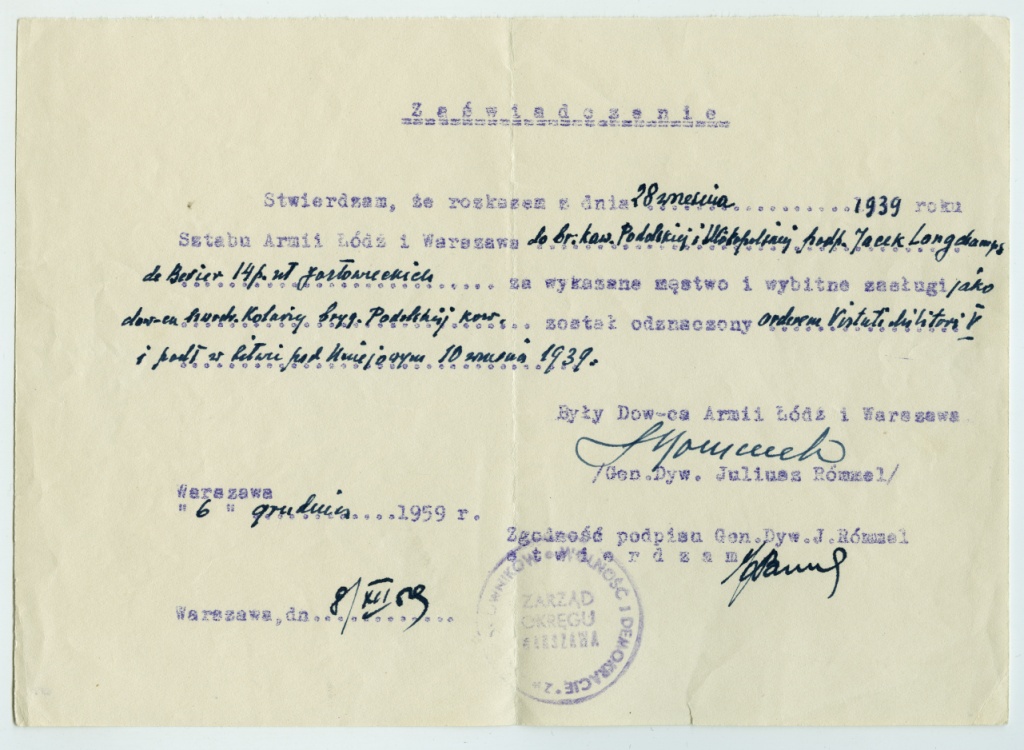 Zaświadczenie
Stwierdzam, że rozkazem z dnia 28 wrzesnia 1939 roku
Sztabu Armii Łódź i Warszawa do br. kaw. Podolskiej i Wielkopolskiej podp. Jacek Longchamps
de Berier 14 p. uł Jazłowieckich za wykazane męstwo i wybitne zasługi jako
dow-ca kaw. Bryg. Podolskiej kaw. został odznaczony orderem Virtuti Militari V
i padł w bitwie pod Uniejowym 10 wrzesnia 1939.
Były Dow-ca Armii Łódź i Warszawa
/Gen.Dyw. Juliusz Rómmel/
Warszawa
" 6 " grudnia 1959 r.
Zgodność podpisu Gen.Dyw.J.Rómmel
s t w i e r d z a m
Warszawa, dn. 8/XII 59
WOLNOŚĆ I DEMOKRACJĘ "Z"
ZARZĄD
OKRĘGU
WARSZAWA